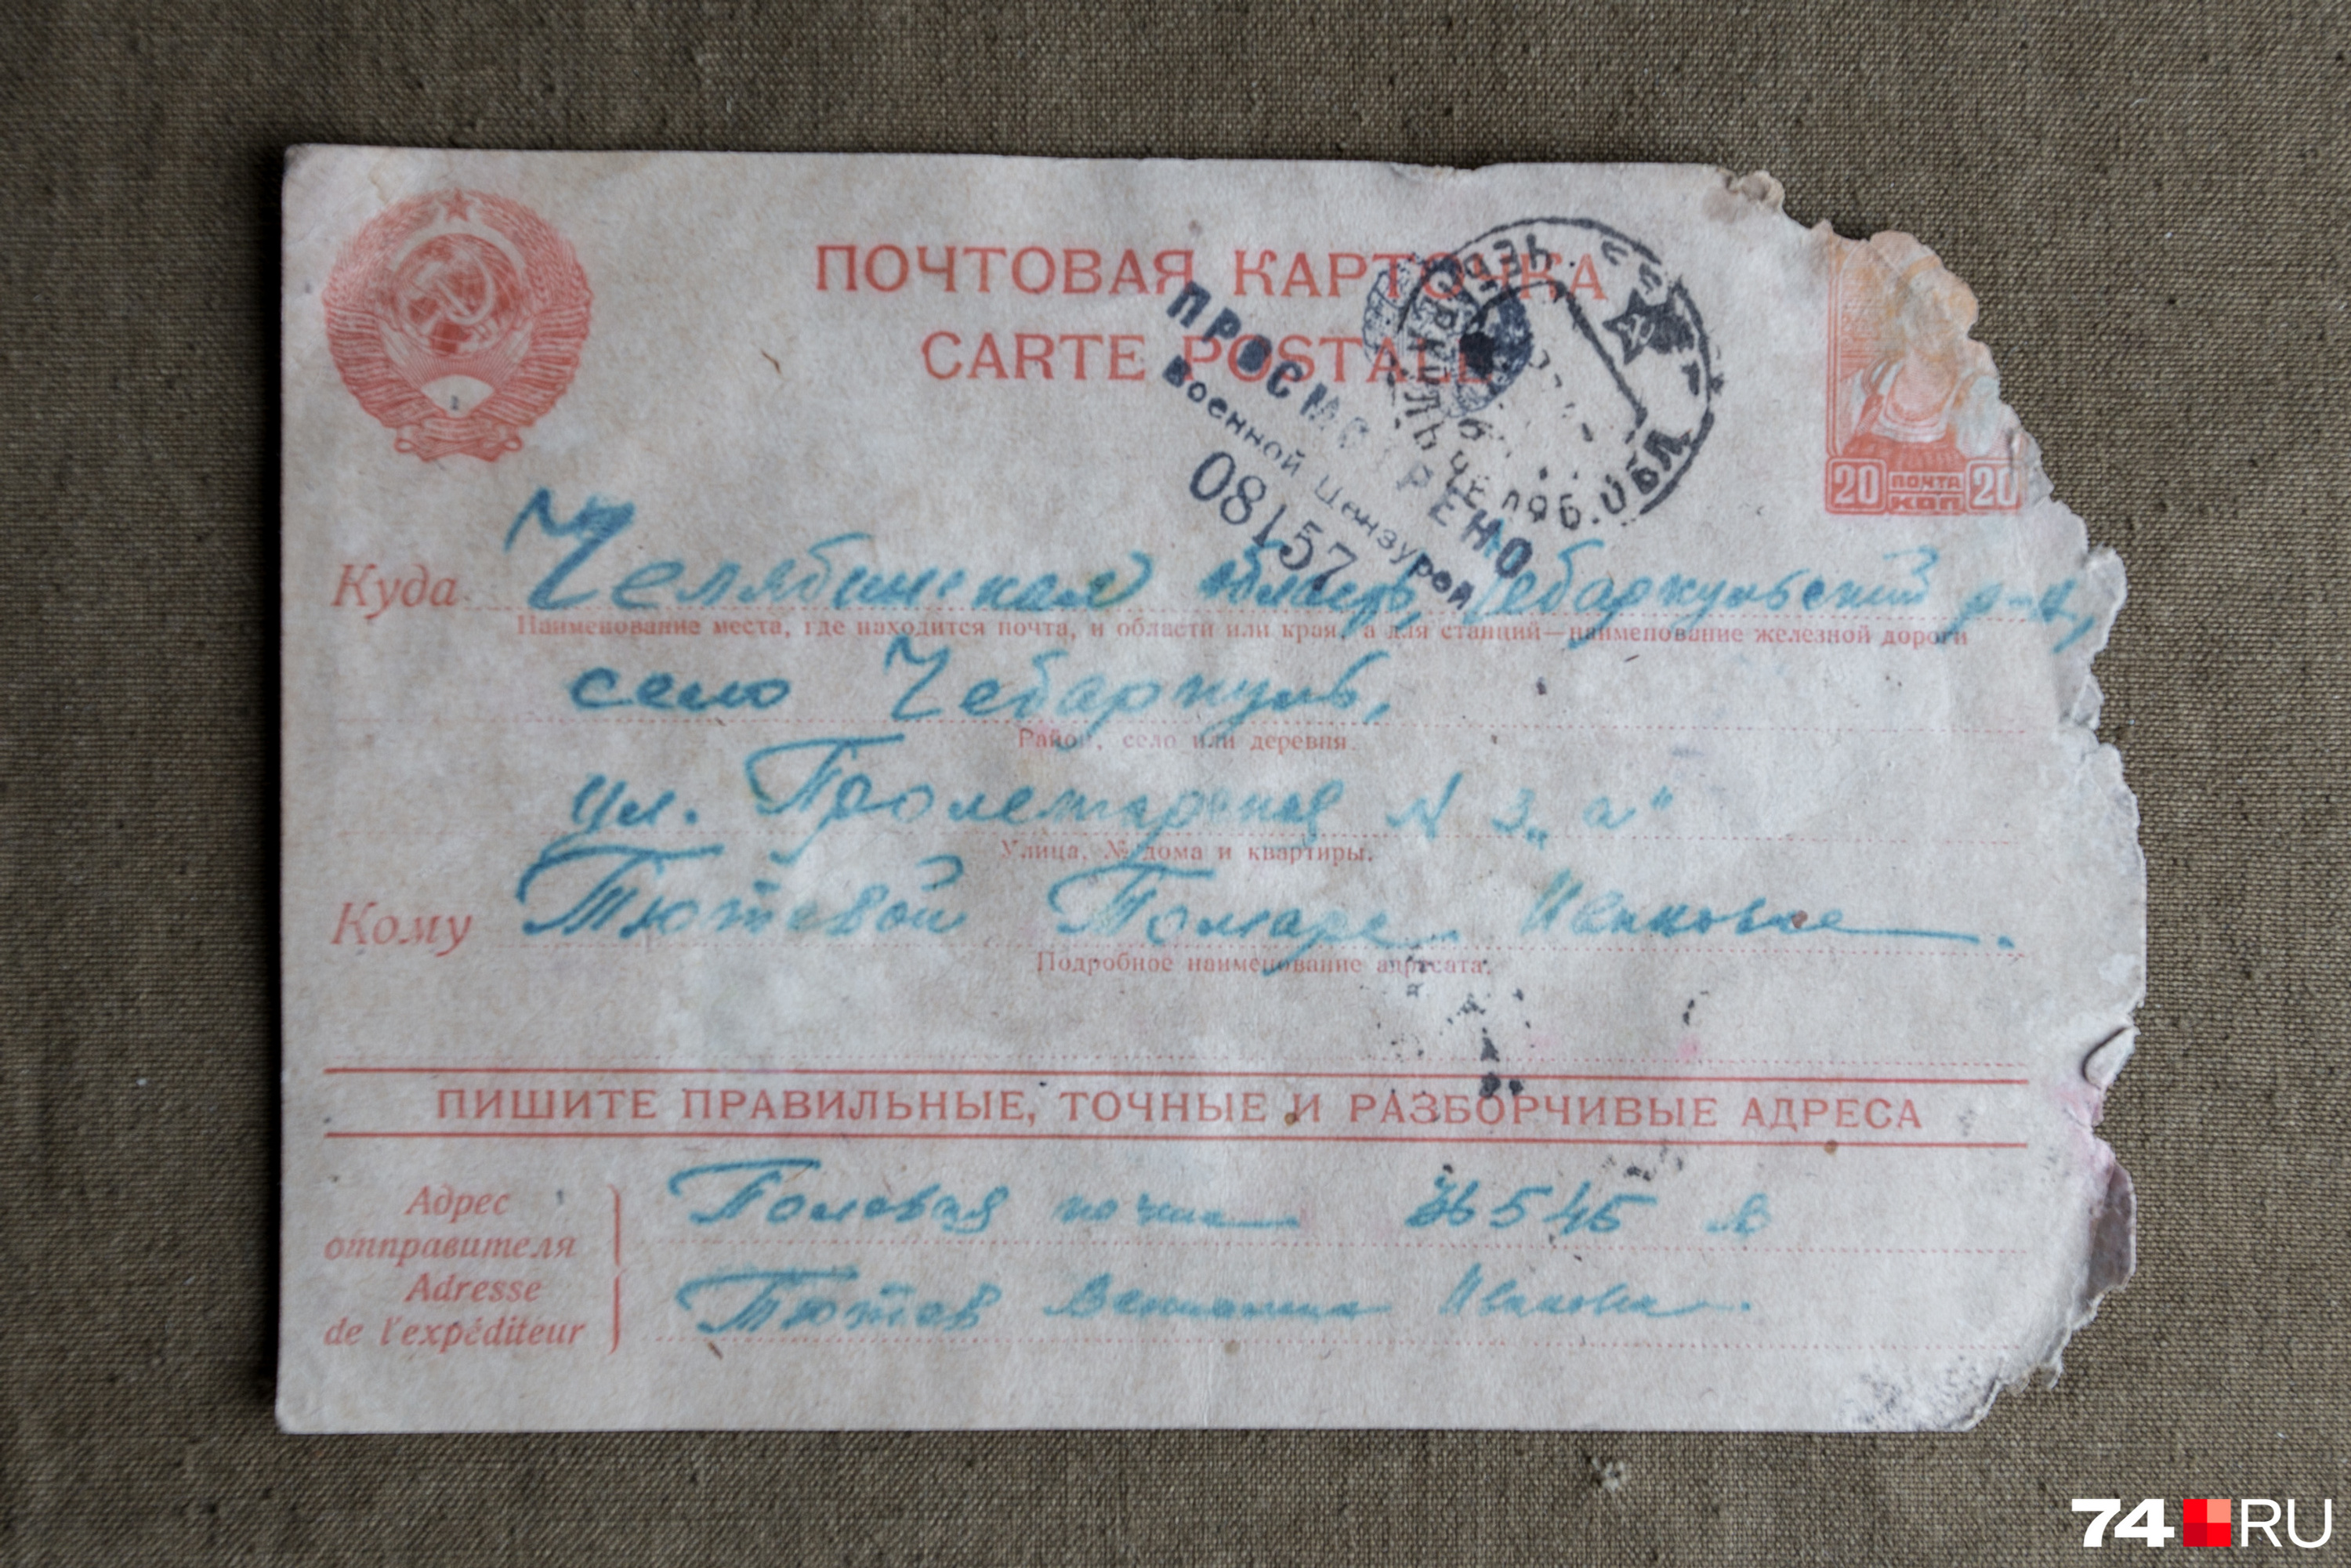 ПОЧТОВАЯ КАРТОЧКА
CARTE POSTALE
ПРОСМОТРЕНО
Военной Цензурой
08157
ЧЕБАРКУЛЬ ЧЕЛЯБ. ОБЛ.
20 ПОЧТА 20
КОП
Куда Челябинская область, Чебаркульский р-н,
Наименование места, где находится почта, и области или края, а для станций—наименование железной дороги
село Чебаркуль,
Район, село или деревня.
ул. Пролетарская № 3 „а“
Улица, № дома и квартиры.
Кому Тютевой Тамаре Ивановне.
Подробное наименование адресата.
ПИШИТЕ ПРАВИЛЬНЫЕ, ТОЧНЫЕ И РАЗБОРЧИВЫЕ АДРЕСА
Адрес
отправителя
Adresse
de l'expéditeur
Полевая почта
Тютев Вениамин
74 RU